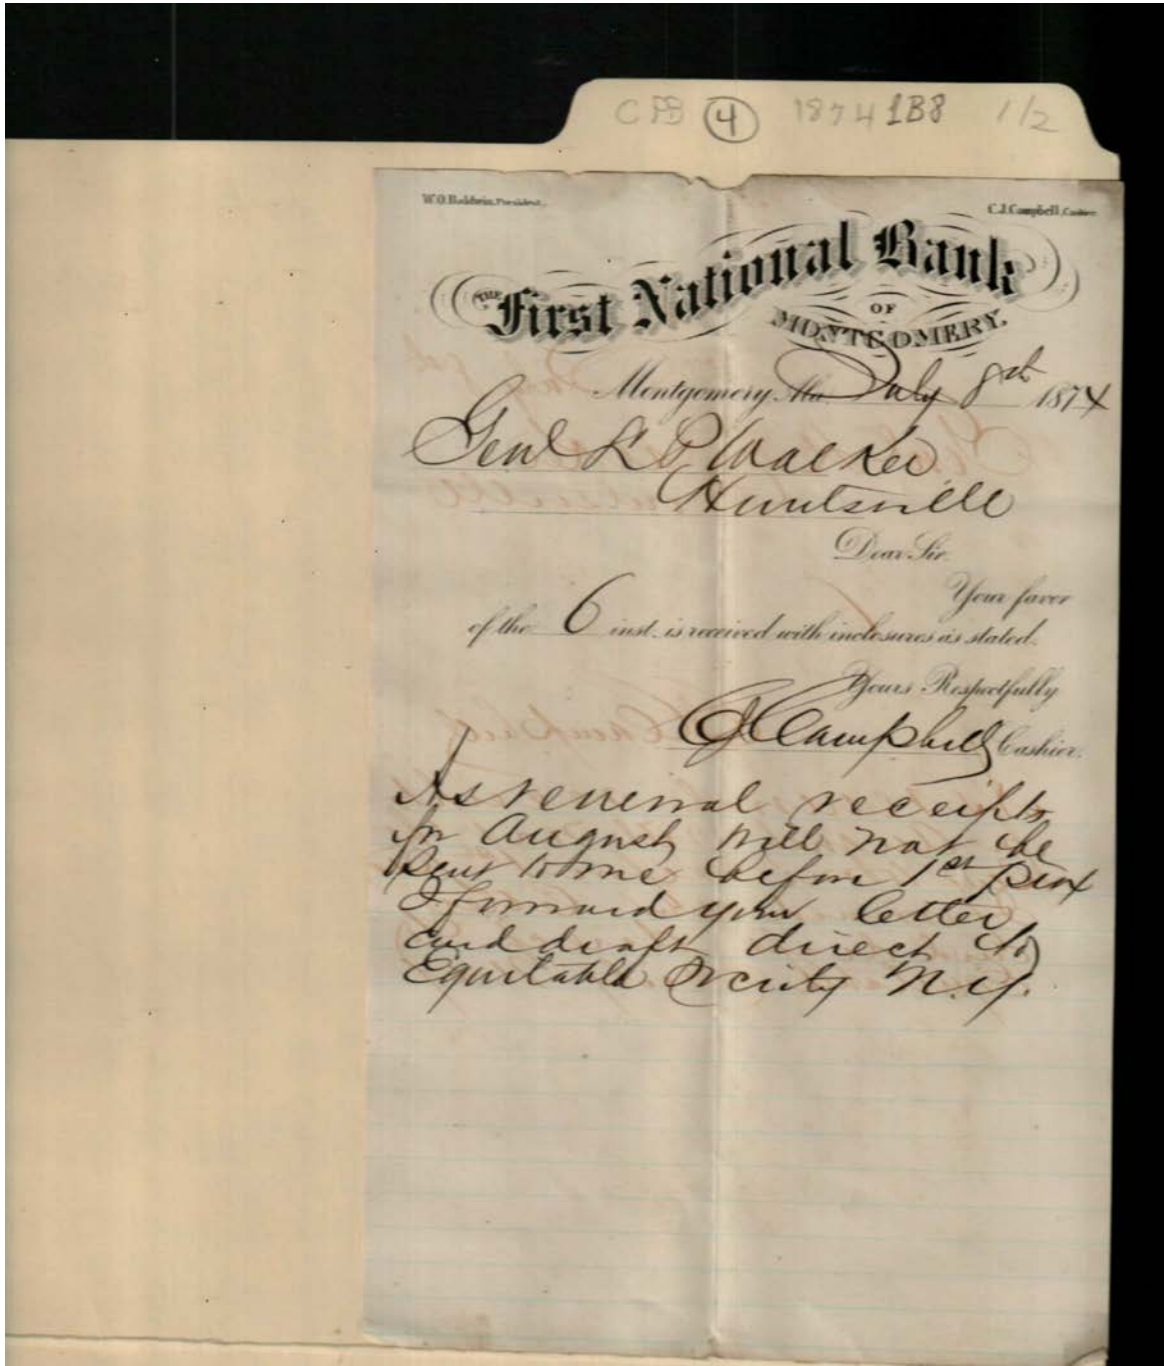 CPB 4 1874 1B8 1/2
W.O. Baldwin, President. C.J. Campbell, Cashier
THE First National Bank
OF
MONTGOMERY.
Montgomery, Ala. July 8th 1874
Genl L P Walker
Huntsville
Dear Sir.
Your favor
of the 6 inst. is received with inclosures as stated.
Yours Respectfully
CJCampbell Cashier.
As renewal receipts
for August will not be
sent to me before 1st prox
I forward your letter
and draft direct to
Equitable Society N.Y.